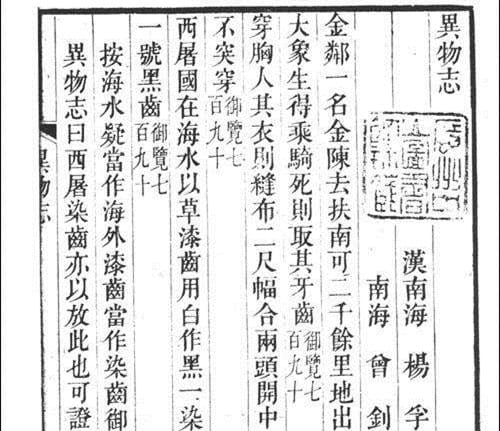 異物志
漢南海 楊孚
南海 曾釗
金鄰一名金陳去扶南可二千餘里地出
大象生得乘騎死則取其牙齒御覽七百九十
穿胸人其衣則縫布二尺幅合兩頭開中
不突穿御覽七百九十
西屠國在海水以草漆齒用白作黑一染
一號黑齒御覽七百九十
按海水疑當作海外漆齒當作染齒御
異物志曰西屠染齒亦以放此也可證
異物志